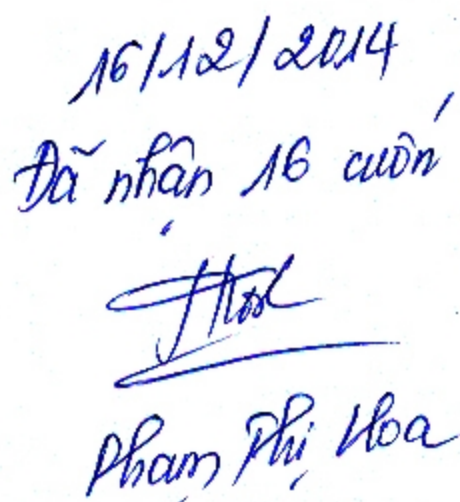 16/12/2014
Đã nhận 16 cuốn
Phạm Phị Hoa